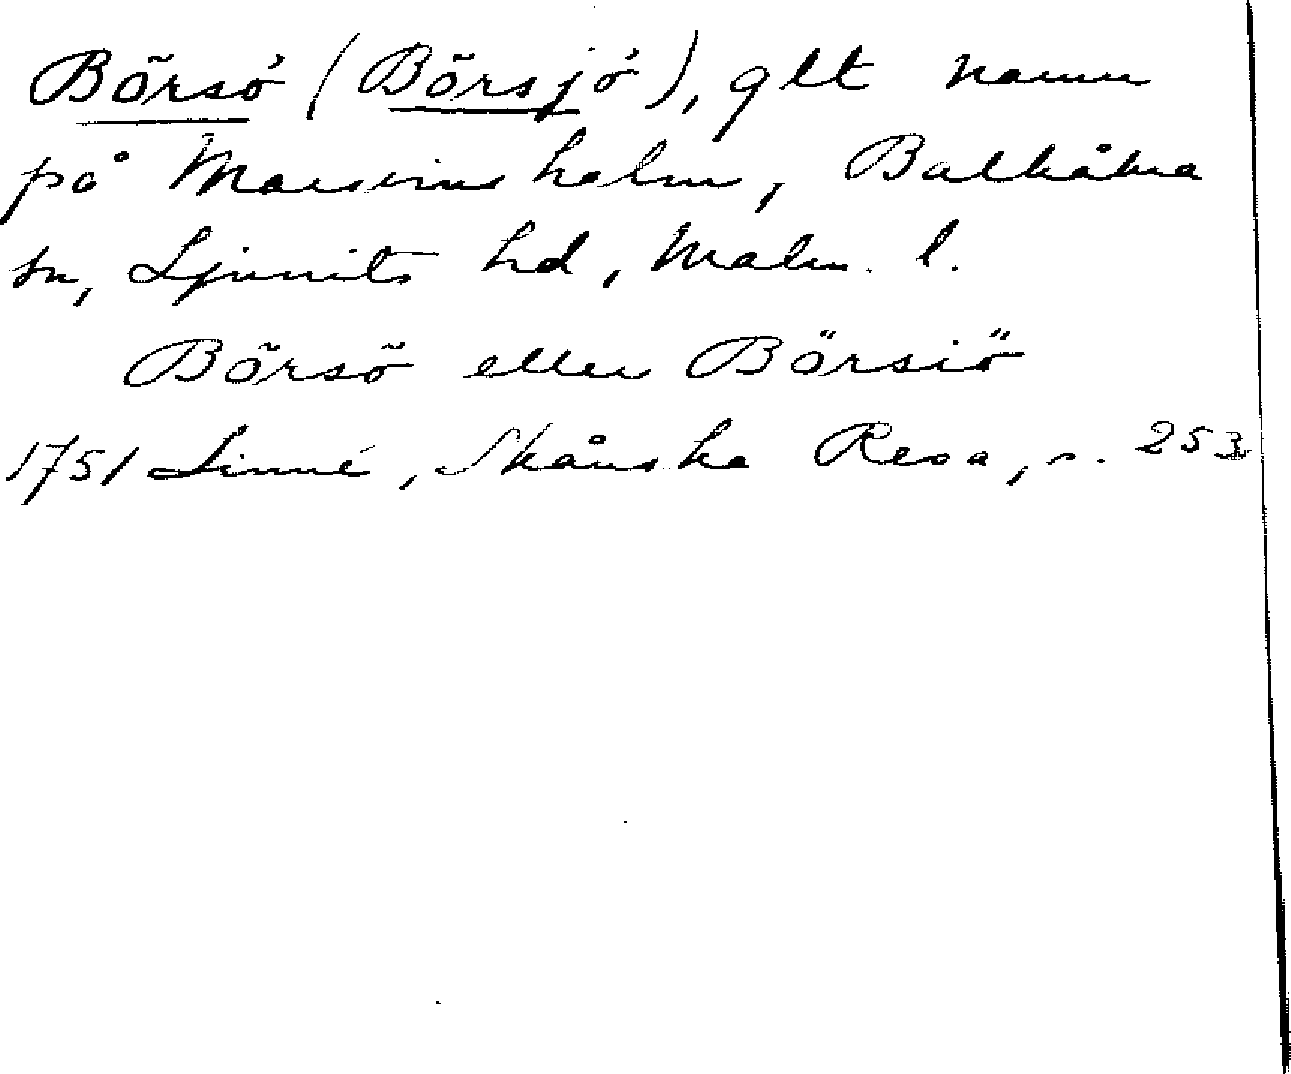 Börsö (Börsjö), glt namn
på Marsvinsholm, Balkåkra
sn, Ljunits hd, Malm. l.
Börsö eller Börsiö
1751 Linné, Skånska Resa, s. 253